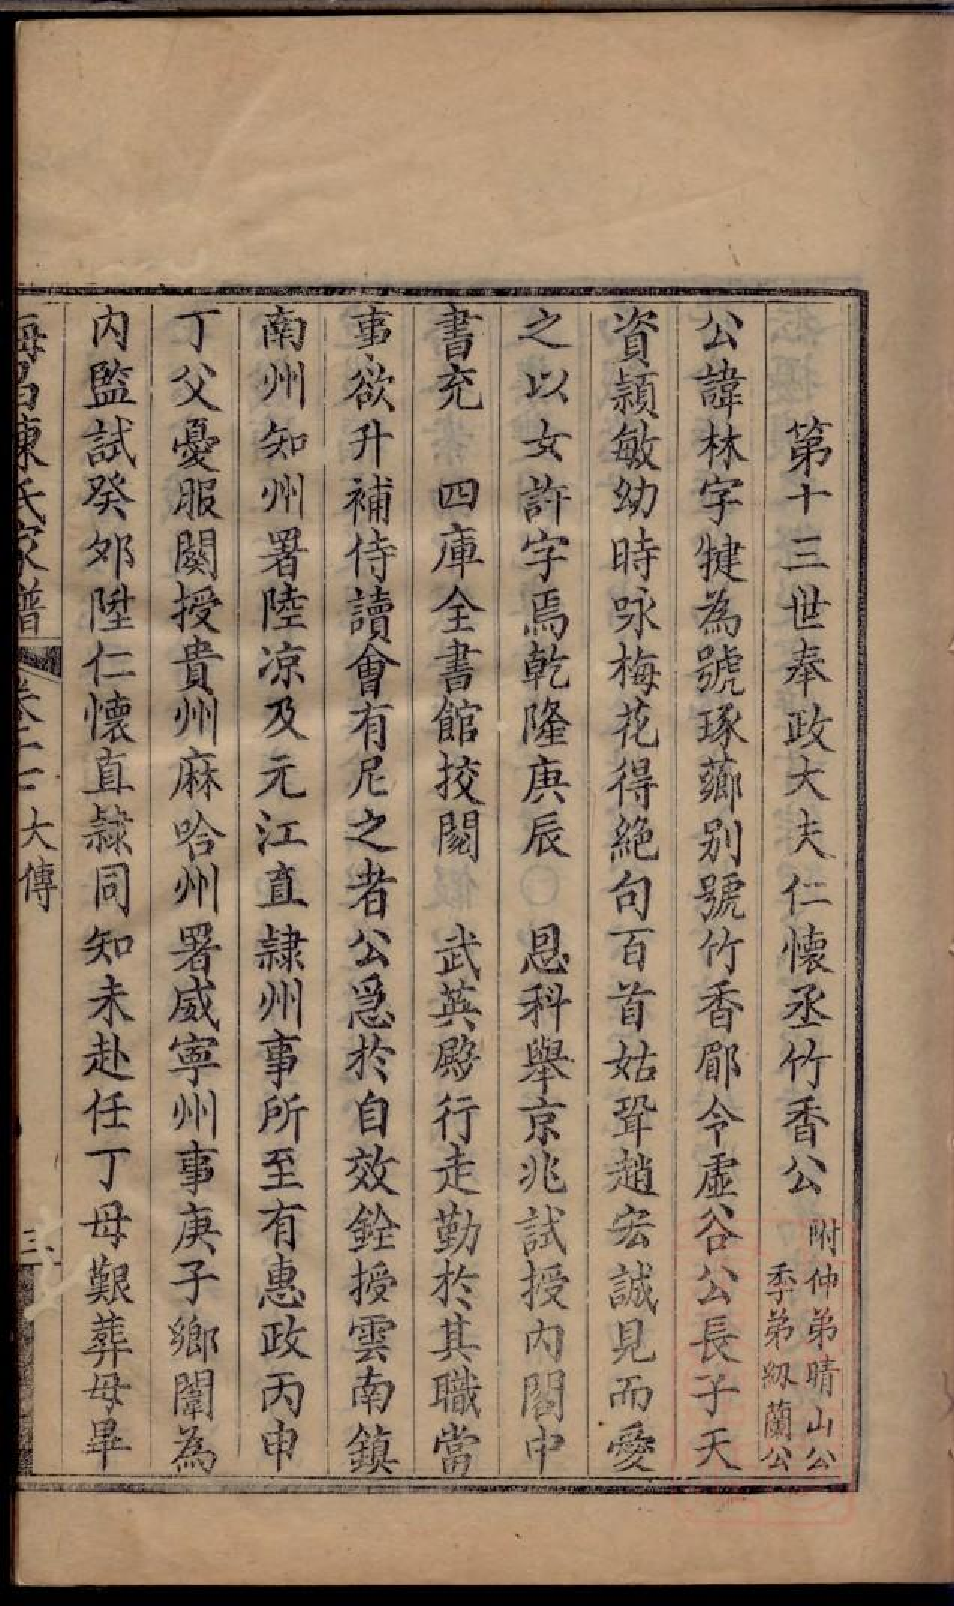 第十三世奉政大夫仁懷丞竹香公 附仲弟晴山公 季弟紉蘭公
公諱林字犍為號琢薌别號竹香郿令虛谷公長子天
資穎敏幼時咏梅花得絶句百首姑聟趙宏誠見而愛
之以女許字焉乾隆庚辰 恩科舉京兆試授内閣中
書充 四庫全書館挍閲 武英殿行走勤於其職當
事欲升補侍讀會有尼之者公急於自效銓授雲南鎮
南州知州署陸凉及元江直隸州事所至有惠政丙申
丁父憂服闋授貴州麻哈州署威寧州事庚子鄉闈為
内監試癸夘陞仁懷直隸同知未赴任丁母艱葬母畢
海昌陳氏家譜 卷二十 大傳 三